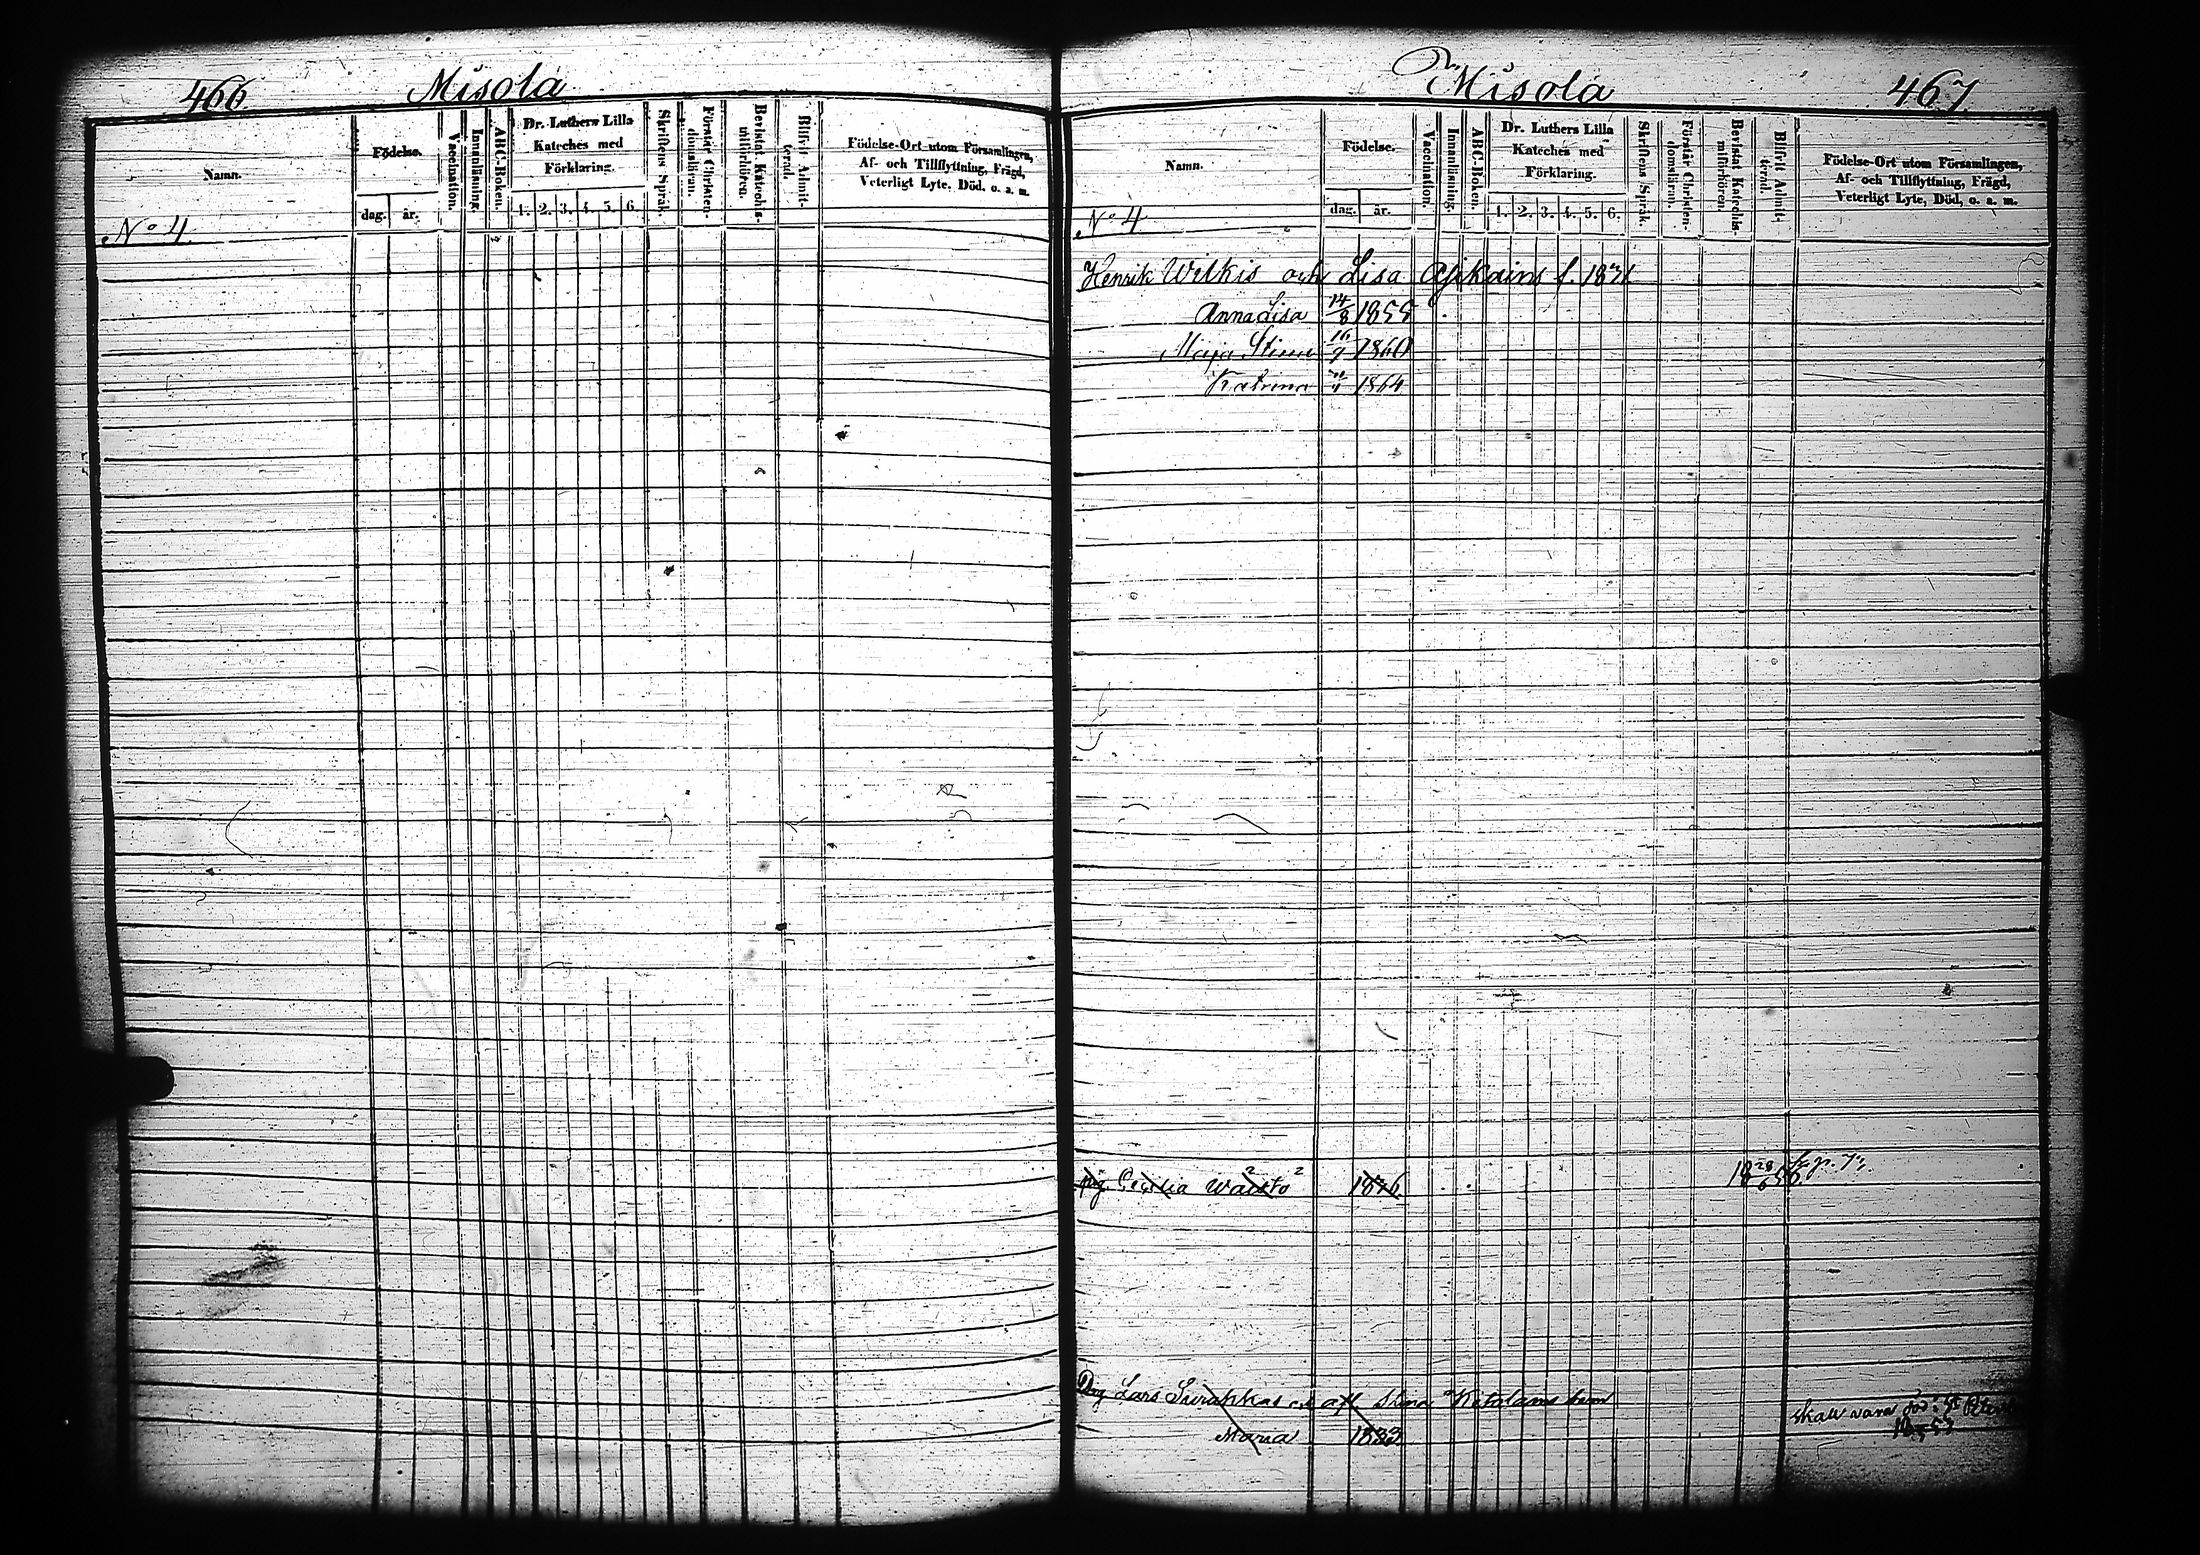 466 Misola
Namn.
Födelse.
dag. år.
Vaccination.
Innanläsning.
ABC-Boken.
Dr. Luthers Lilla
Kateches med
Förklaring.
1. 2. 3. 4. 5. 6.
Skriftens Språk.
Förstår Christen-
domsläran.
Bevistat Katechis-
miförhören.
Blifvit Admit-
terad.
Födelse-Ort utom Församlingen,
Af- och Tillflyttning, Frägd,
Veterligt Lyte, Död, o. a. m.
No 4.
Misola 467
Namn.
Födelse.
dag. år.
Vaccination.
Innanläsning.
ABC-Boken.
Dr. Luthers Lilla
Kateches med
Förklaring.
1. 2. 3. 4. 5. 6.
Skriftens Språk.
Förstår Christen-
domsläran.
Bevistat Katechis-
miförhören.
Blifvit Admit-
terad.
Födelse-Ort utom Församlingen,
Af- och Tillflyttning, Frägd,
Veterligt Lyte, Död, o. a. m.
No 4
Henrik Wilkis och Lisa f. 1831
Anna Lisa 14/8 1855
Maja Stina 16/7 1860
Katrina 1864
pig. Cecilia
Lars Stina
Maria 1833
skall vara